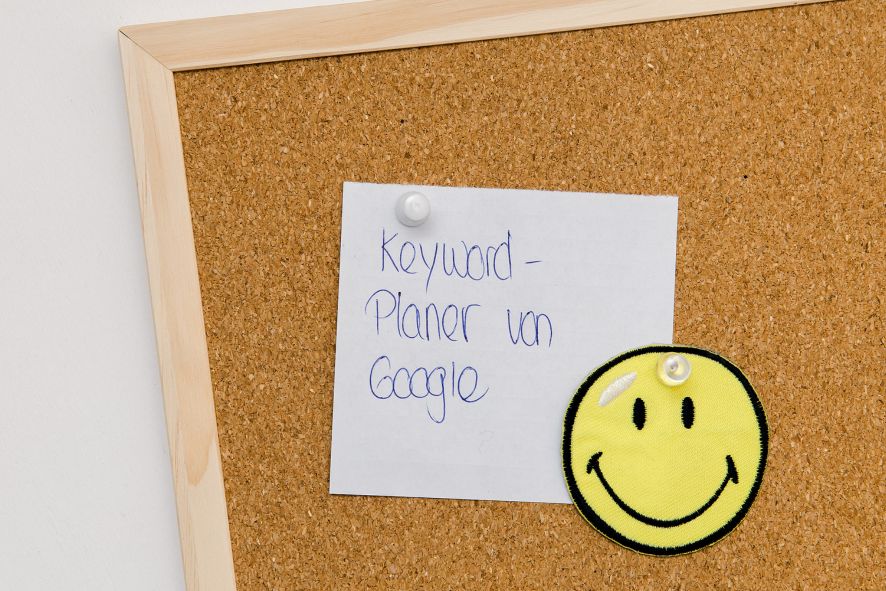 Keyword-
Planer von
Google